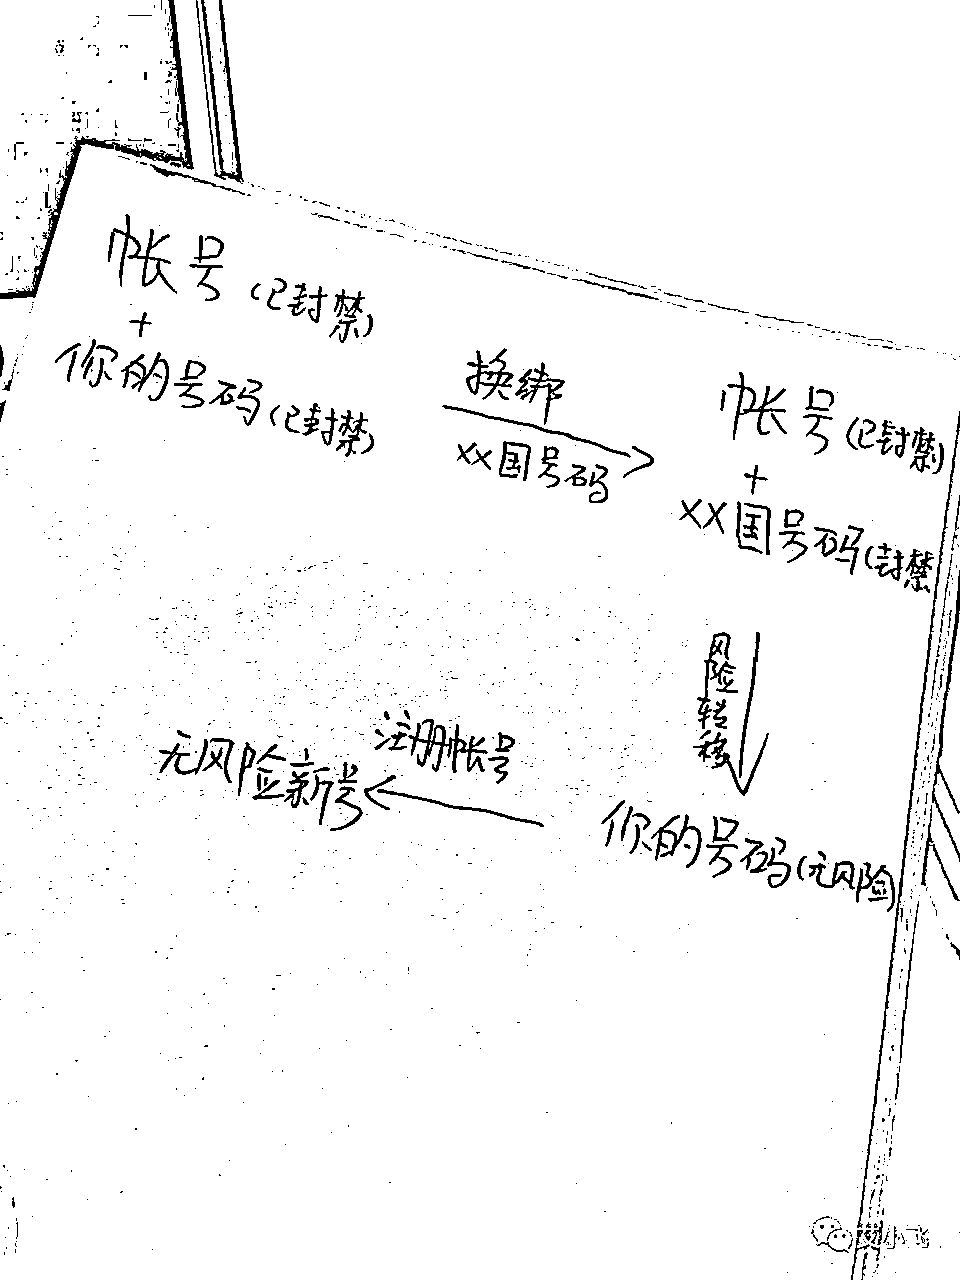 帐号(已封禁)
+
你的号码(已封禁)
换绑
XX国号码
帐号(已封禁)
+
XX国号码(封禁
风险转移
你的号码(无风险)
注册帐号
无风险新号
艾小飞